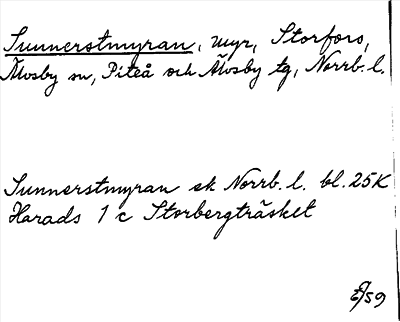 Sunnerstmyran, myr, Storfors,
Älvsby sn, Piteå och Älvsby tg, Norrb. l.
Sunnerstmyran ek Norrb. l. bl. 25K
Harads 1 c Storbergträsket
/59